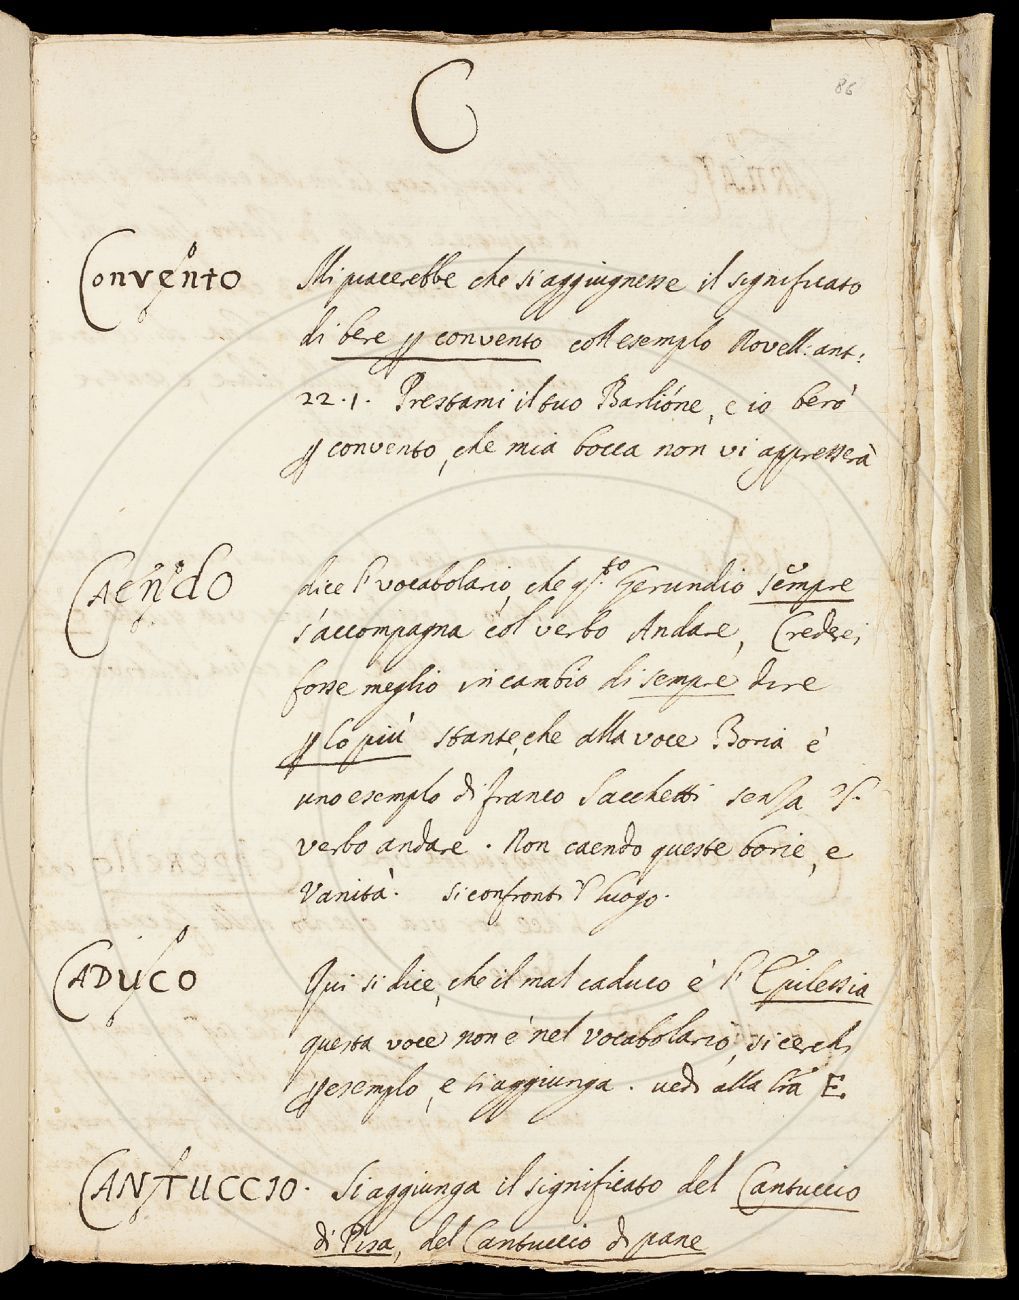 86
C
Convento Mi piacerebbe che si aggiugnesse il significato
di bere p convento coll esemplo Novell: ant:
22.1. Prestami il tuo Barlióne, e io berò
p convento, che mia bocca non vi appresserà
Caendo dice l' vocabolario, che q.to Gerundio sempre
s'accompagna col verbo Andare, Crederei
forse meglio in cambio di sempre dire
p lo più stante, che alla voce Boria è
uno esemplo di franco Sacchetti senza il
verbo andare. Non caendo queste borie, e
Vanità. si confronti l' luogo.
Caduco Qui si dice, che il mal caduco è l' Epilessia
questa voce non è nel vocabolario, si cerchi
p esemplo, e si aggiunga. vedi alla lra E.
Cantuccio. Si aggiunga il significato del Cantuccio
di Pisa, del Cantuccio di pane